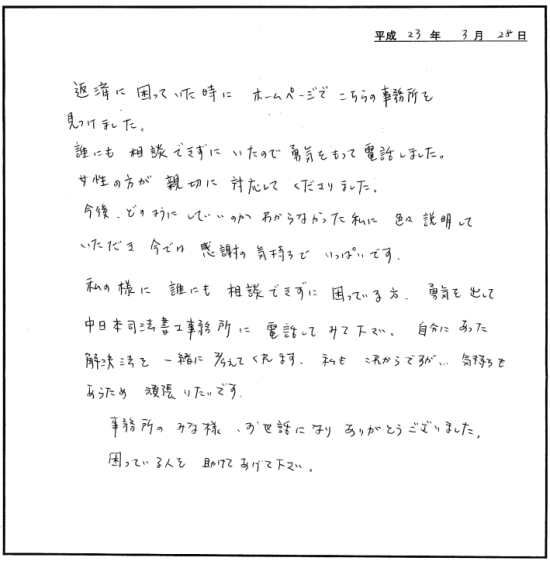 平成 23 年 3 月 28 日
返済に 困っていた時に ホームページで こちらの事務所を
見つけました。
誰にも 相談できずに いたので 勇気をもって 電話しました。
女性の方が 親切に 対応して くださりました。
今後、どのようにしていいのか わからなかった私に 色々 説明して
いただき 今では 感謝の 気持ちで いっぱいです。
私の様に 誰にも 相談できずに 困っている方、勇気を出して
中日本司法書士事務所に 電話して みて下さい。 自分にあった
解決法を 一緒に 考えてくれます。 私も これからですが… 気持ちも
あらため 頑張りたいです。
事務所の みな様、お世話になり ありがとうございました。
困っている人を 助けて あげて下さい。